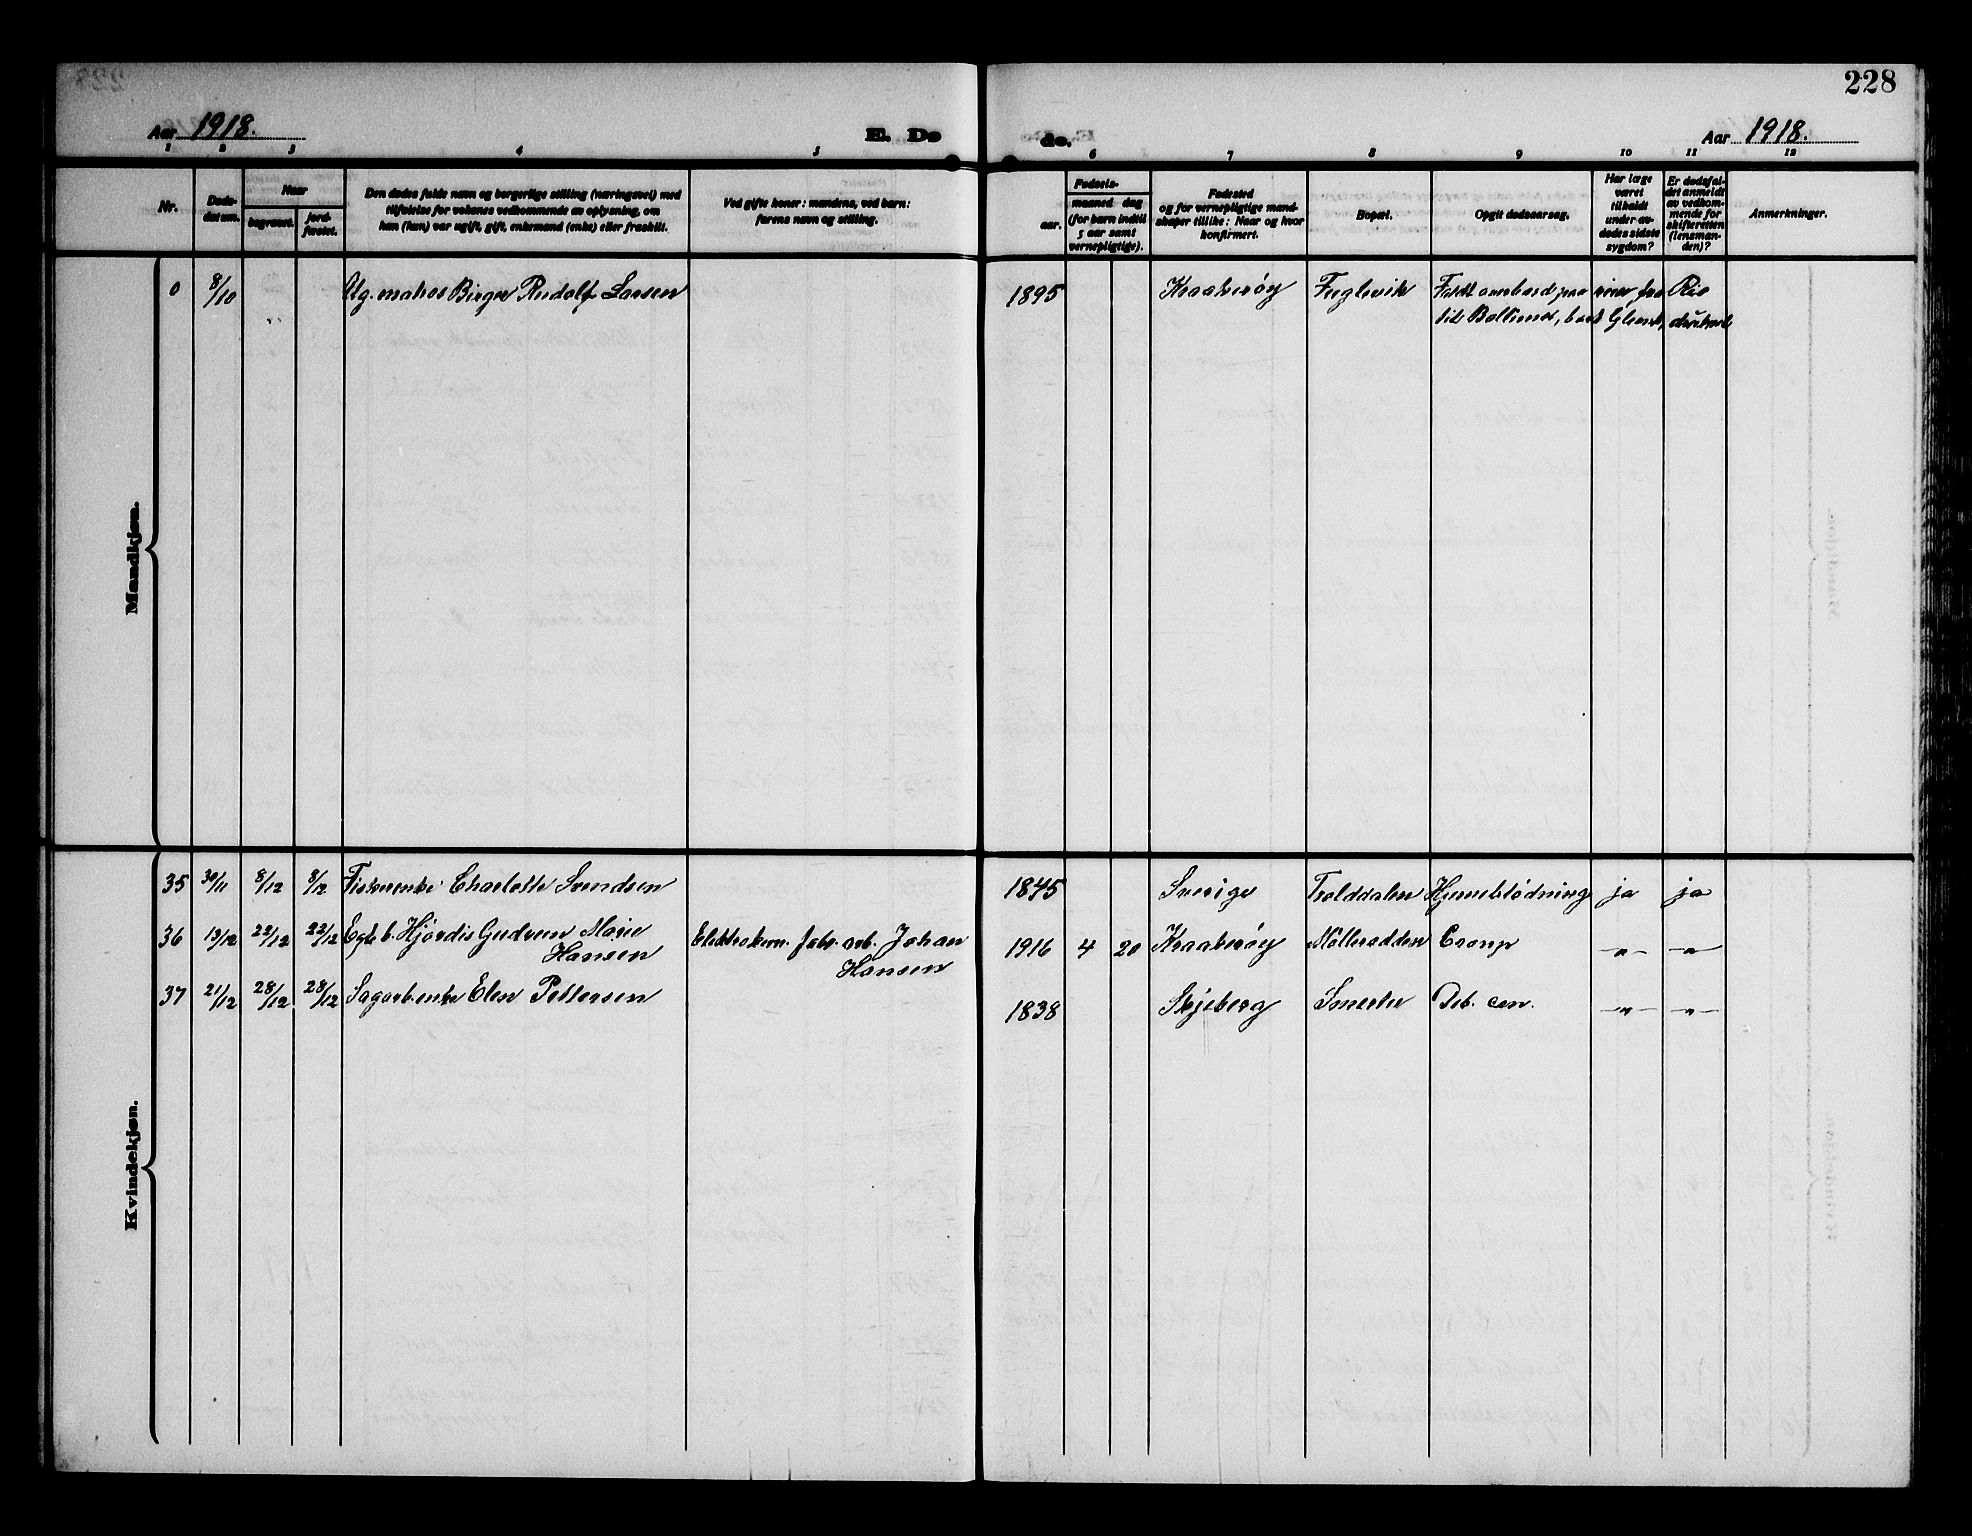 228
Aar 1918.
E. Dø
de.
Aar 1918.
1 2 3 4 5 6 7 8 9 10 11 12
Nr.
Døds-
datum.
Naar
begravet.
jord-
fæstet.
Den dødes fulde navn og borgerlige stilling (næringsvei) med
tilføielse for voksnes vedkommende av oplysning, om
han (hun) var ugift, gift, enkemand (enke) eller fraskilt.
Ved gifte koner: mandens, ved barn:
farens navn og stilling.
Fødsels-
aar.
maaned dag
(for barn indtil
5 aar samt
vernepligtige).
Fødested
og for vernepligtige mand-
skaper tillike: Naar og hvor
konfirmert.
Bopæl.
Opgit dødsaarsag.
Har læge
været
tilkaldt
under av-
dødes sidste
sygdom?
Er dødsfal-
det anmeldt
av vedkom-
mende for
skifteretten
(lensman-
den)?
Anmerkninger.
Mandkjøn.
0 8/10 Ug. matros Birger Rudolf Larsen 1895 Kraakerøy Fuglevik Faldt overbord paa reise fra Rio
til Baltimor, bark Glenar,
Kvindekjøn.
35 30/11 8/12 8/12 Fiskerenke Charlotte Svendsen 1845 Sverige Trolddalen Hjerneblødning ja ja
36 13/12 22/12 22/12 Egteb. Hjørdis Gudrun Marie Elektrokem. fabr. arb. Johan 1916 4 20 Kraakerøy Mölleradden Croup -"- -"-
Hansen Hansen
37 21/12 28/12 28/12 Sagarb.enke Elen Pettersen 1838 Skjeberg Smertu Deb. cen. -"- -"-